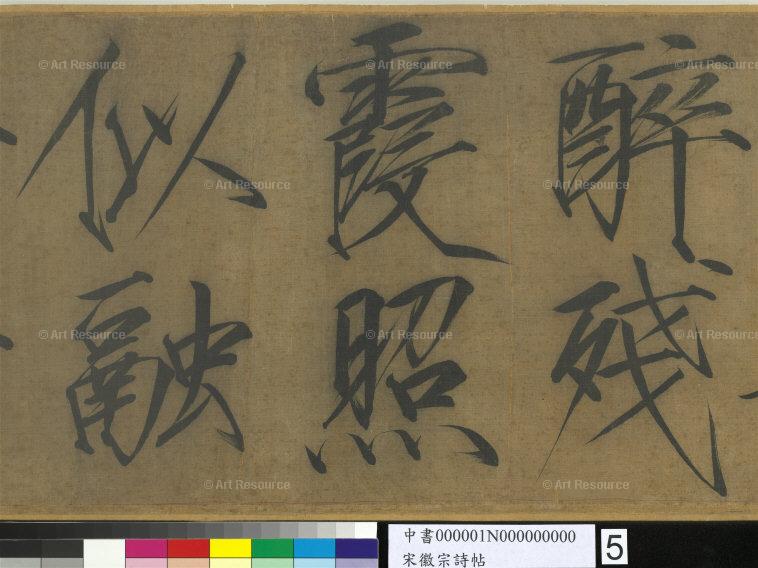 醉殘
霞照
似融
中書000001N000000000
宋徽宗詩帖
5
© Art Resource
© Art Resource
© Art Resource
© Art Resource
© Art Resource
© Art Resource
© Art Resource
© Art Resource
© Art Resource
© Art Resource
© Art Resource
© Art Resource